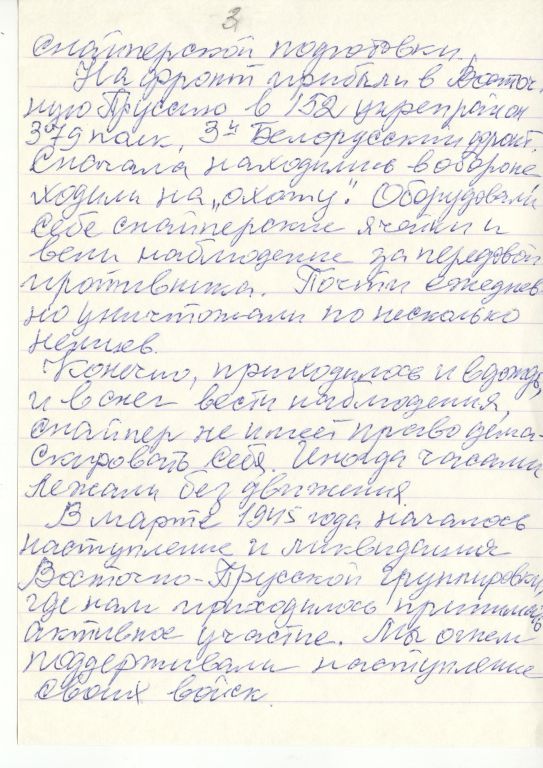 3
снайперской подготовки.
На фронт прибыли в Восточ-
ную Пруссию в 152 укрепрайон
379 полк, 3й Белорусский фронт.
Сначала находились в обороне
ходили на „охоту". Оборудовали
себе снайперские ячейки и
вели наблюдение за передовой
противника. Почти ежеднев-
но уничтожали по несколько
немцев.
Конечно, приходилось и в дождь,
и в снег вести наблюдения,
снайпер не имеет право дема-
скировать себя. Иногда часами
лежали без движения.
В марте 1945 года началось
наступление и ликвидация
Восточно-Прусской группировки,
где нам приходилось принимать
активное участие. Мы огнем
поддерживали наступление
своих войск.